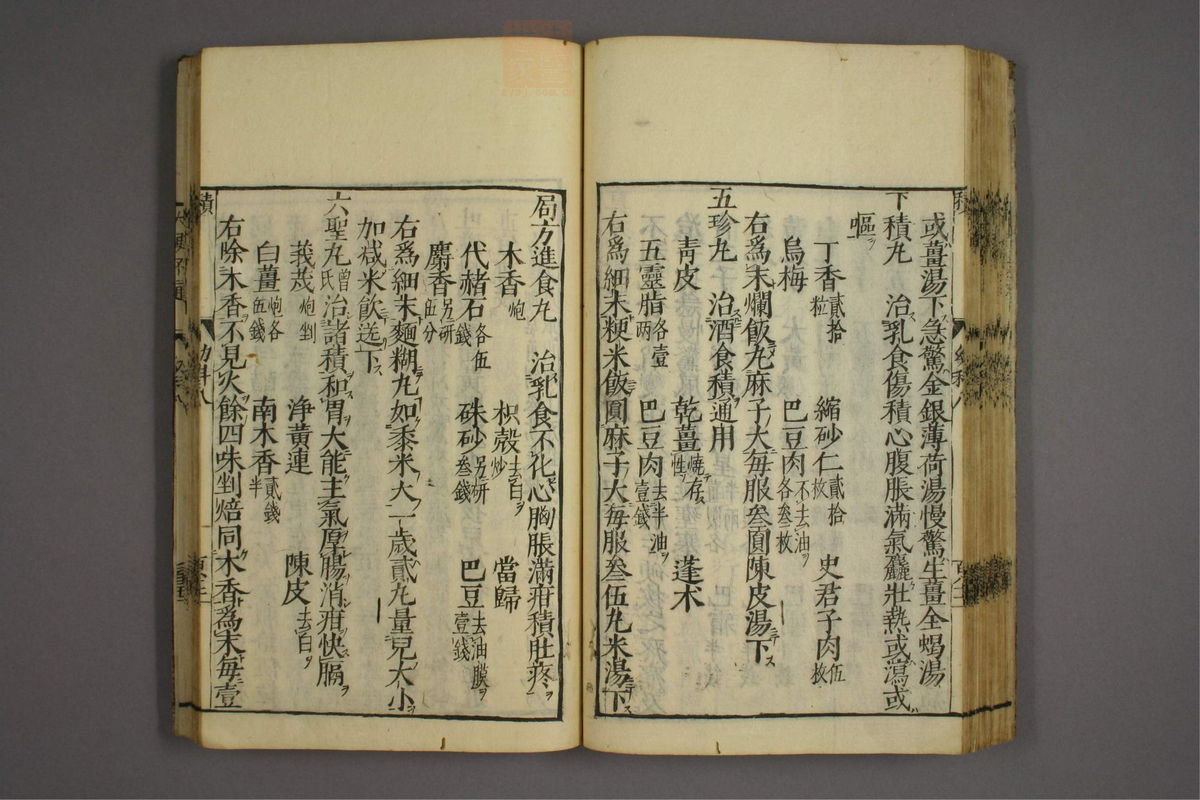 或薑湯下急驚金銀薄荷湯慢驚生薑全蝎湯
下積丸 治乳食傷積心腹脹滿氣麤壯熱或瀉或
嘔
丁香貳拾粒 縮砂仁貳拾枚 史君子肉伍枚
烏梅 巴豆肉不去油各叁枚
右爲末爛飯丸麻子大每服叁圓陳皮湯下
五珍丸 治酒食積通用
青皮 乾薑燒存性 蓬术
五靈脂各壹兩 巴豆肉去半油壹錢
右爲細末粳米飯圓麻子大每服叁伍丸米湯下
局方進食丸 治乳食不化心胸脹滿疳積肚疼
木香炮 枳殼去白炒 當歸
代赭石各伍錢另研 硃砂另研叁錢 巴豆去油膜壹錢
麝香伍分
右爲細末麵糊丸如黍米大一歲貳丸量兒大小
加減米飲送下
六聖丸曾氏 治諸積和胃大能主氣厚腸消疳快膈
莪茂炮剉 淨黃連 陳皮去白
白薑炮各伍錢 南木香貳錢半
右除木香不見火餘四味剉焙同木香爲末每壹